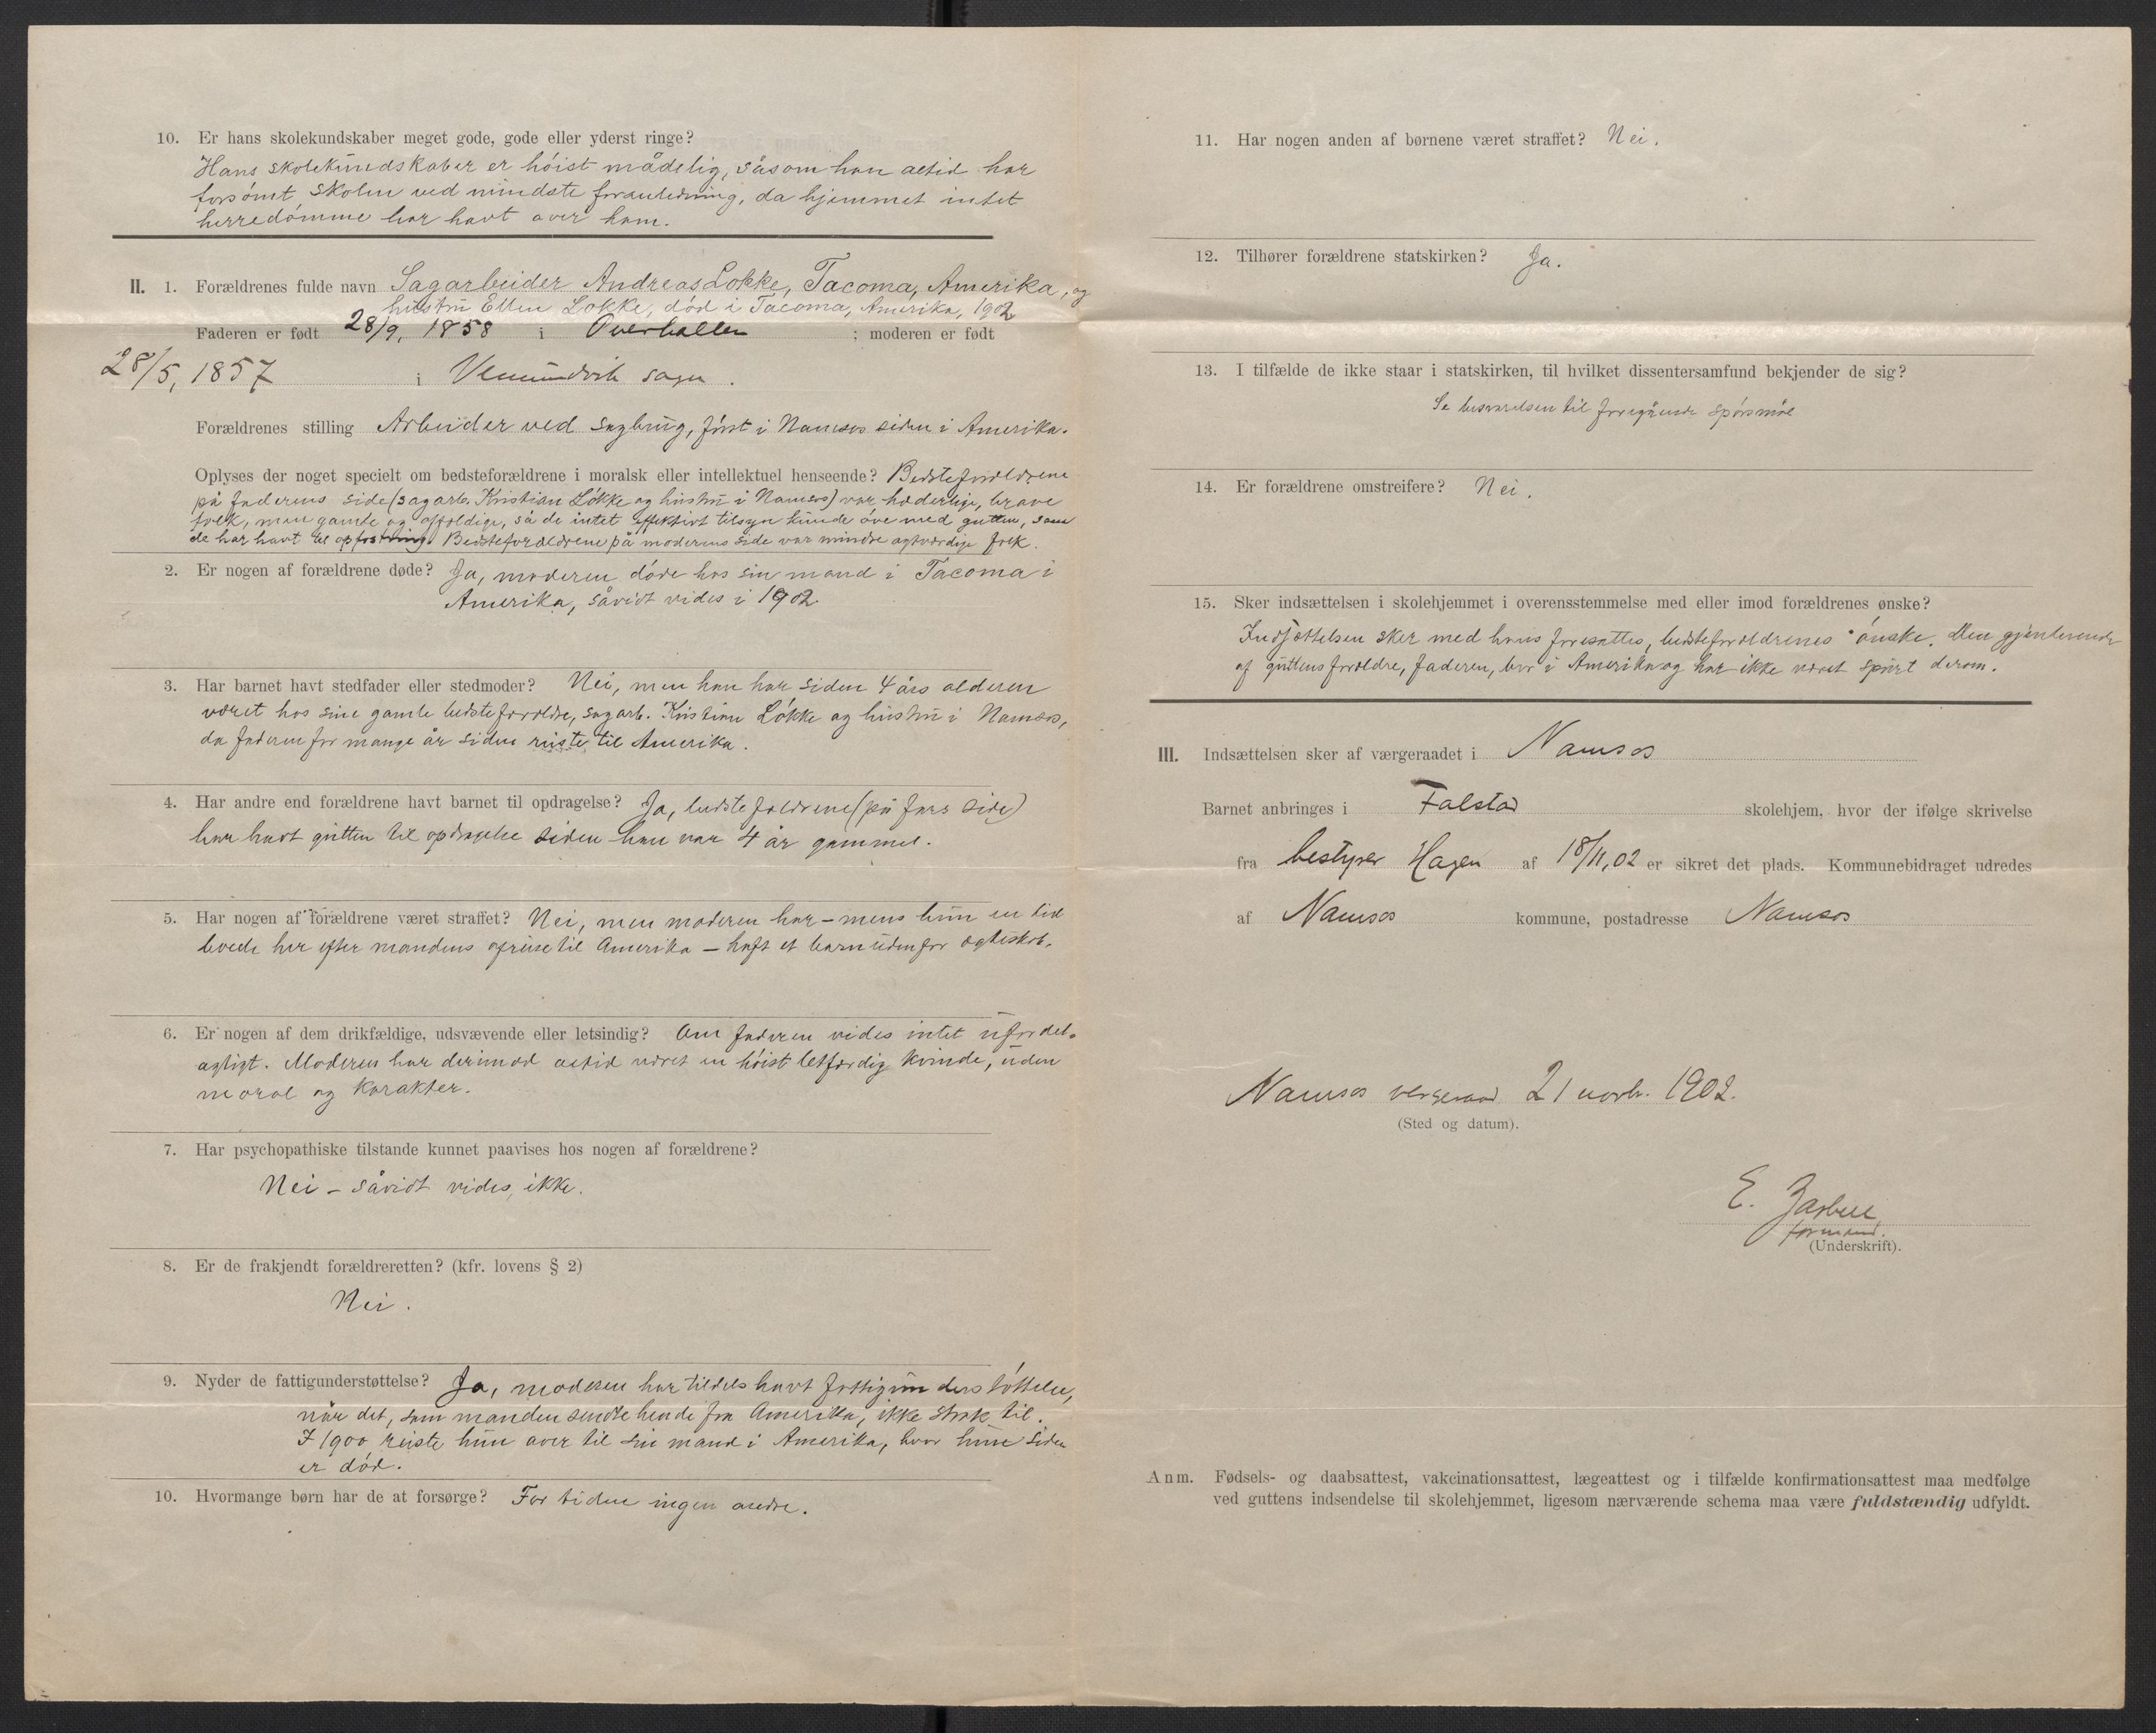 10. Er hans skolekundskaber meget gode, gode eller yderst ringe?
Hans skolekundskaber er høist mådelig, såsom han altid har
forsømt skolen ved mindste foranledning, da hjemmet intet
herredømme har havt over ham.
II. 1. Forældrenes fulde navn Sagarbeider Andreas Løkke, Tacoma, Amerika, og
hustru Ellen Løkke, død i Tacoma, Amerika, 1902
Faderen er født 28/9, 1858 i Overhallen ; moderen er født
28/5, 1857 i Vemundvik sogn.
Forældrenes stilling Arbeider ved sagbrug, først i Namsos siden i Amerika.
Oplyses der noget specielt om bedsteforældrene i moralsk eller intellektuel henseende? Bedsteforældrene
på faderens side (sagarb. Kristian Løkke og hustru i Namsos) var hæderlige, brave
folk, men gamle og affældige, så de intet effektivt tilsyn kunde øve med gutten, som
de har havt til opfostring. Bedsteforældrene på moderens side var mindre agtværdige folk.
2. Er nogen af forældrene døde? Ja, moderen døde hos sin mand i Tacoma i
Amerika, såvidt vides i 1902
3. Har barnet havt stedfader eller stedmoder? Nei, men han har siden 4 års alderen
været hos sine gamle bedsteforældre, sagarb. Kristian Løkke og hustru i Namsos,
da faderen for mange år siden reiste til Amerika.
4. Har andre end forældrene havt barnet til opdragelse? Ja, bedstefoldrene (på fars side)
har havt gutten til opdragelse siden han var 4 år gammel.
5. Har nogen af forældrene været straffet? Nei, men moderen har – mens hun en tid
levede her efter mandens afreise til Amerika – haft et barn udenfor ægteskab.
6. Er nogen af dem drikfældige, udsvævende eller letsindig? Om faderen vides intet ufordel-
agtigt. Moderen har derimod altid været en høist letfærdig kvinde, uden
moral og karakter.
7. Har psychopathiske tilstande kunnet paavises hos nogen af forældrene?
Nei – såvidt vides, ikke.
8. Er de frakjendt forældreretten? (kfr. lovens § 2)
Nei.
9. Nyder de fattigunderstøttelse? Ja, moderen har tildels havt fattigunderstøttelse,
når det, som manden sendte hende fra Amerika, ikke strak til.
I 1900 reiste hun over til sin mand i Amerika, hvor hun siden
er død.
10. Hvormange børn har de at forsørge? For tiden ingen andre.
11. Har nogen anden af børnene været straffet? Nei.
12. Tilhører forældrene statskirken? Ja.
13. I tilfælde de ikke staar i statskirken, til hvilket dissentersamfund bekjender de sig?
Se besvarelsen til foregående spørsmål
14. Er forældrene omstreifere? Nei.
15. Sker indsættelsen i skolehjemmet i overensstemmelse med eller imod forældrenes ønske?
Indsættelsen sker med hans foresattes, bedsteforældrenes ønske. Den gjenlevende
af guttens forældre, faderen, bor i Amerika og har ikke været spurt derom.
III. Indsættelsen sker af værgeraadet i Namsos
Barnet anbringes i Falstad skolehjem, hvor der ifølge skrivelse
fra bestyrer Hagen af 18/11,02 er sikret det plads. Kommunebidraget udredes
af Namsos kommune, postadresse Namsos
Namsos vergeraad 21 novbr. 1902.
(Sted og datum).
E.
formand.
(Underskrift).
Anm. Fødsels- og daabsattest, vakcinationsattest, lægeattest og i tilfælde konfirmationsattest maa medfølge
ved guttens indsendelse til skolehjemmet, ligesom nærværende schema maa være fuldstændig udfyldt.